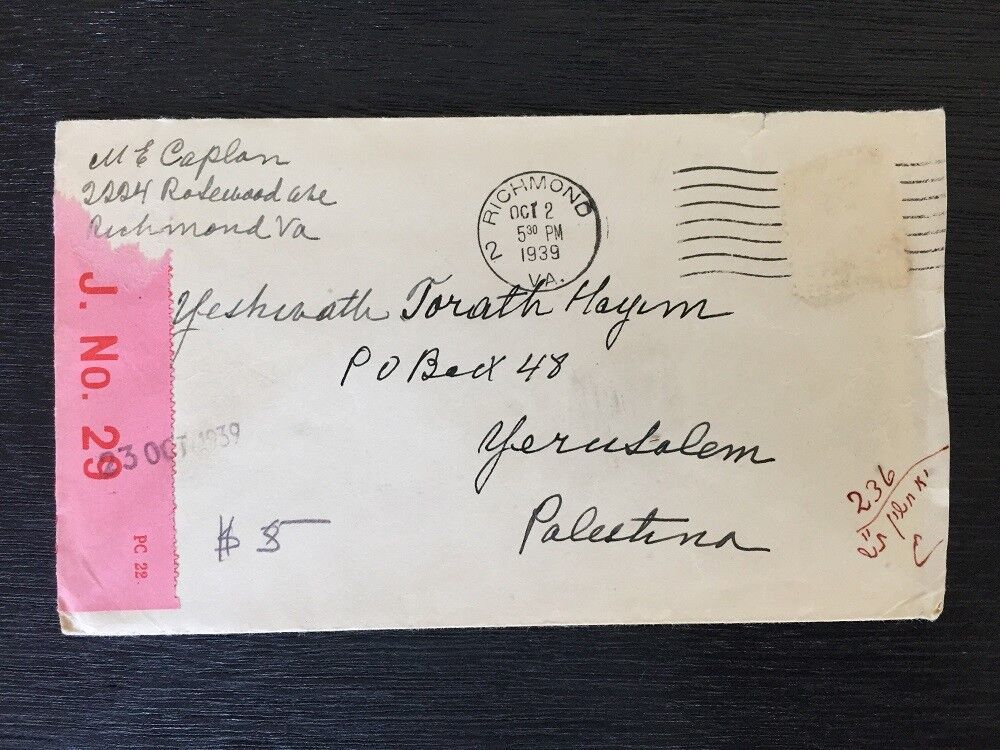 M E Caplan
2224 Rosewood ave
Richmond Va
RICHMOND
OCT 2
5 30 PM
1939
2
VA.
Yeshivath Torath Hayim
P O Box 48
Yerusalem
Palestina
J. No. 29
PC 22.
23 OCT 1939
$ 5
236
יא חשון ת"ש